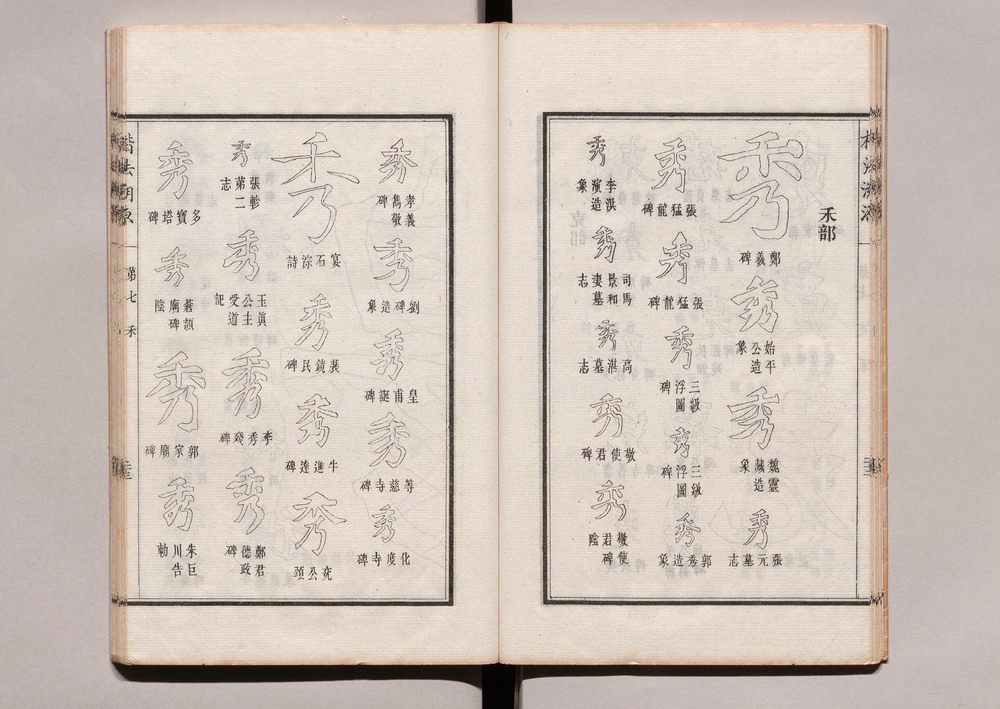 楷法溯源
禾部
秀
鄭羲碑
秀
始平公造象
秀
魏靈藏造象
秀
張元墓志
秀
張猛龍碑
秀
張猛龍碑
秀
三級浮圖碑
秀
三級浮圖碑
秀
郭秀造象
秀
李洪演造象
秀
司馬景和妻墓志
秀
高湛墓志
秀
敬使君碑
秀
敬使君碑陰
秀
孝義雋敬碑
秀
劉碑造象
秀
皇甫誕碑
秀
等慈寺碑
秀
化度寺碑
秀
宴石淙詩
秀
裴鏡民碑
秀
牛進達碑
秀
兗公頌
秀
張軫第二志
秀
玉眞公主受道記
秀
李秀殘碑
秀
鄭君德政碑
秀
多寶塔碑
秀
蒼頡廟碑陰
秀
郭家廟碑
秀
朱巨川告勅
楷法溯源
第七
禾